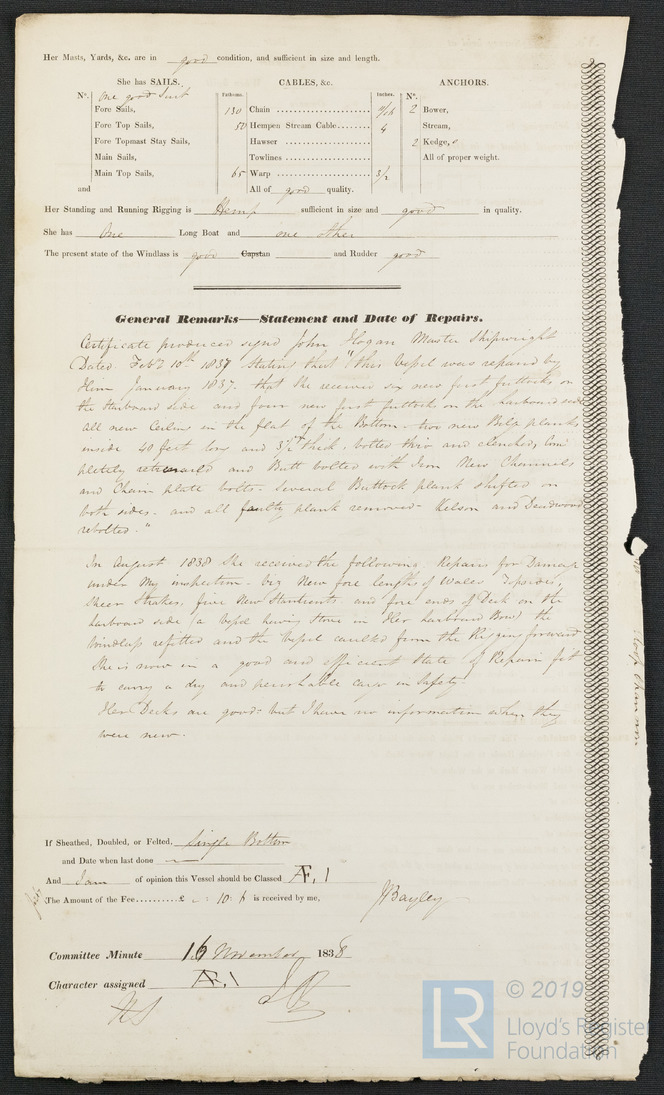 Her Masts, Yards, &c. are in good condition, and sufficient in size and length.
She has SAILS. CABLES, &c. ANCHORS.
N°. One good Suit Fathoms. Inches. N°.
Fore Sails, 130 Chain 9/16 2 Bower,
Fore Top Sails, 50 Hempen Stream Cable 4 Stream,
Fore Topmast Stay Sails, Hawser 2 Kedge,
Main Sails, Towlines All of proper weight.
Main Top Sails, 65 Warp 3/2
and All of good quality.
Her Standing and Running Rigging is Hemp sufficient in size and good in quality.
She has One Long Boat and one other
The present state of the Windlass is good Capstan and Rudder good
General Remarks—Statement and Date of Repairs.
Certificate produced signd John Hogan Master Shipwright
Dated Feby 10th 1837 Stating that "this Vessel was repaired by
Him January 1837. that She received six new first futtocks on
the Starboard side and four new first futtocks on the larboard side
all new Ceiling in the flat of the Bottom - two new Bilge planks
inside 40 feet long and 3 1/2 thick, bolted thro and clenched, Com
pletely and Butt bolted with Iron New Channels
and Chain plate bolts - Several Buttock plank shifted on
both sides - and all faulty plank removed - Kelson and Deadwood
rebolted."
In August 1838 She received the following Repairs for Damage
under My inspection - New fore lengths of Wales
Sheer Strakes, five New Stantients and fore ends of Deck on the
larboard side (a Vessel having Stove in Her larboard Bow) the
Windlass refitted and the Vessel caulked from the Rigging forward
She is now in a good and efficient State of Repair fit
to carry a dry and perishable cargo in Safety.
Her Decks are good - but I have no information when they
were new.
If Sheathed, Doubled, or Felted, Single Bottom
and Date when last done —
And I am of opinion this Vessel should be Classed Æ.1
The Amount of the Fee £ - : 10 : 6 is received by me,
J Bayley
Committee Minute 16 November 1838
Character assigned Æ.1
© 2019
LR
Lloyd's Register
Foundation